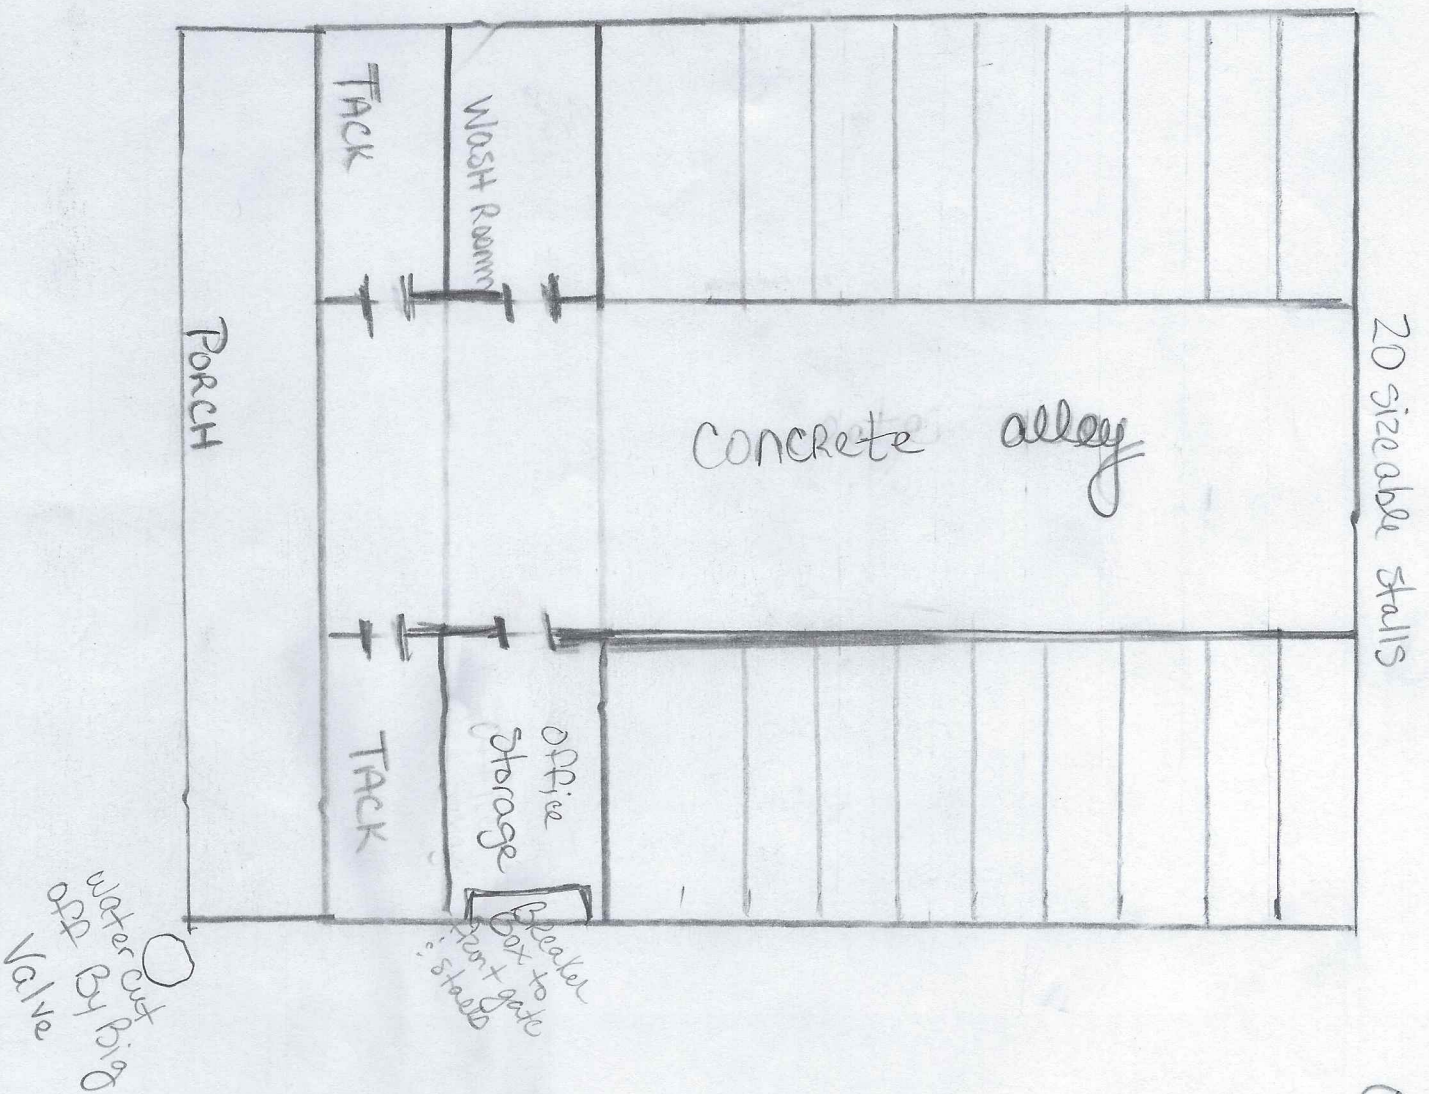 TACK
WasH Room
PORCH
CONCRete alley
20 sizeable stalls
TACK
office
storage
Breaker
Box to
front gate
& stalls
water cut
off By Big
Valve